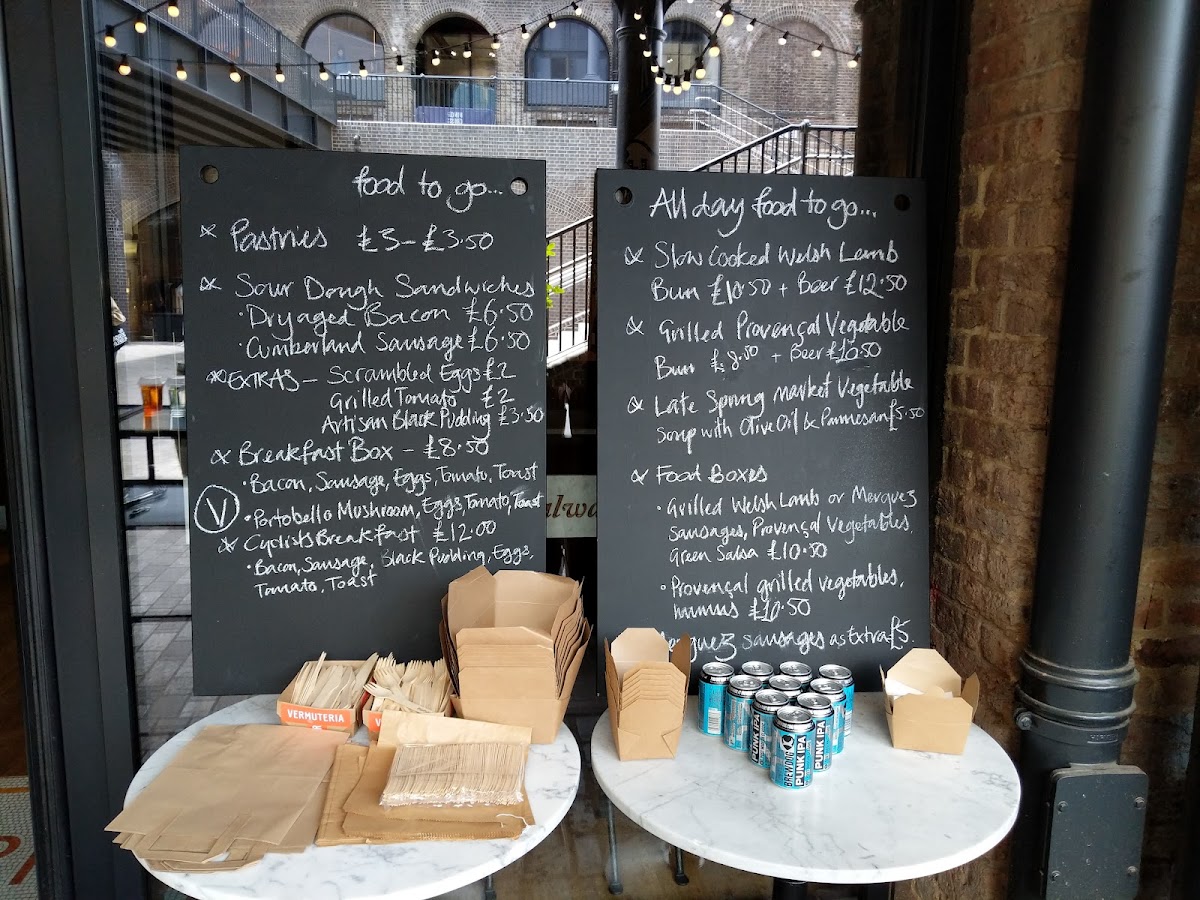 food to go...
Pastries £3-£3.50
Sour Dough Sandwiches
• Dry aged Bacon £6.50
• Cumberland Sausage £6.50
EXTRAS - Scrambled Eggs £2
Grilled Tomato £2
Artisan Black Pudding £3.50
Breakfast Box - £8.50
• Bacon, Sausage, Eggs, Tomato, Toast
V • Portobello Mushroom, Eggs, Tomato, Toast
Cyclists Breakfast £12.00
• Bacon, Sausage, Black Pudding, Eggs,
Tomato, Toast
All day food to go...
Slow Cooked Welsh Lamb
Bun £10.50 + Beer £12.50
Grilled Provençal Vegetable
Bun £8.50 + Beer £10.50
Late Spring Market Vegetable
Soup with Olive Oil & Parmesan £5.50
Food Boxes
• Grilled Welsh Lamb or Merguez
Sausages, Provençal Vegetables,
Green Salsa £10.50
• Provençal grilled vegetables,
humus £10.50
sausages as Extra £5.
VERMUTERIA
BREWDOG
PUNK IPA
PUNK IPA